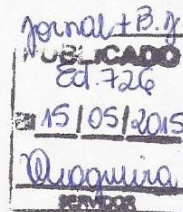 Jornal + B.J
PUBLICADO
Ed. 726
15 / 05 / 2015
SERVIDOR